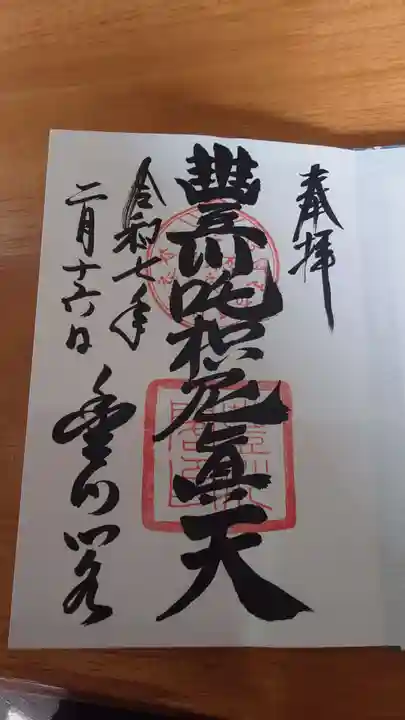 奉拝
豊川吒枳尼眞天
令和七年
二月十六日
豊川閣